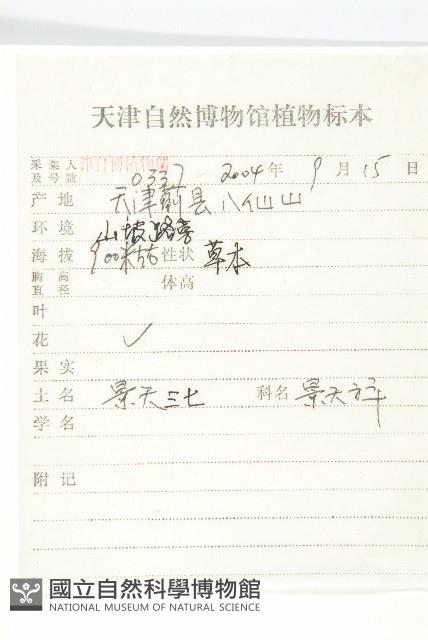 天津自然博物馆植物标本
采集人及号数 津自博植物 0337 2004年 9月 15日
产地 天津蓟县八仙山
环境 山坡路旁
海拔 900米 性状 草本
胸高直径 体高
叶
花 ✓
果实
土名 景天三七 科名 景天
学名
附记
國立自然科學博物館
NATIONAL MUSEUM OF NATURAL SCIENCE